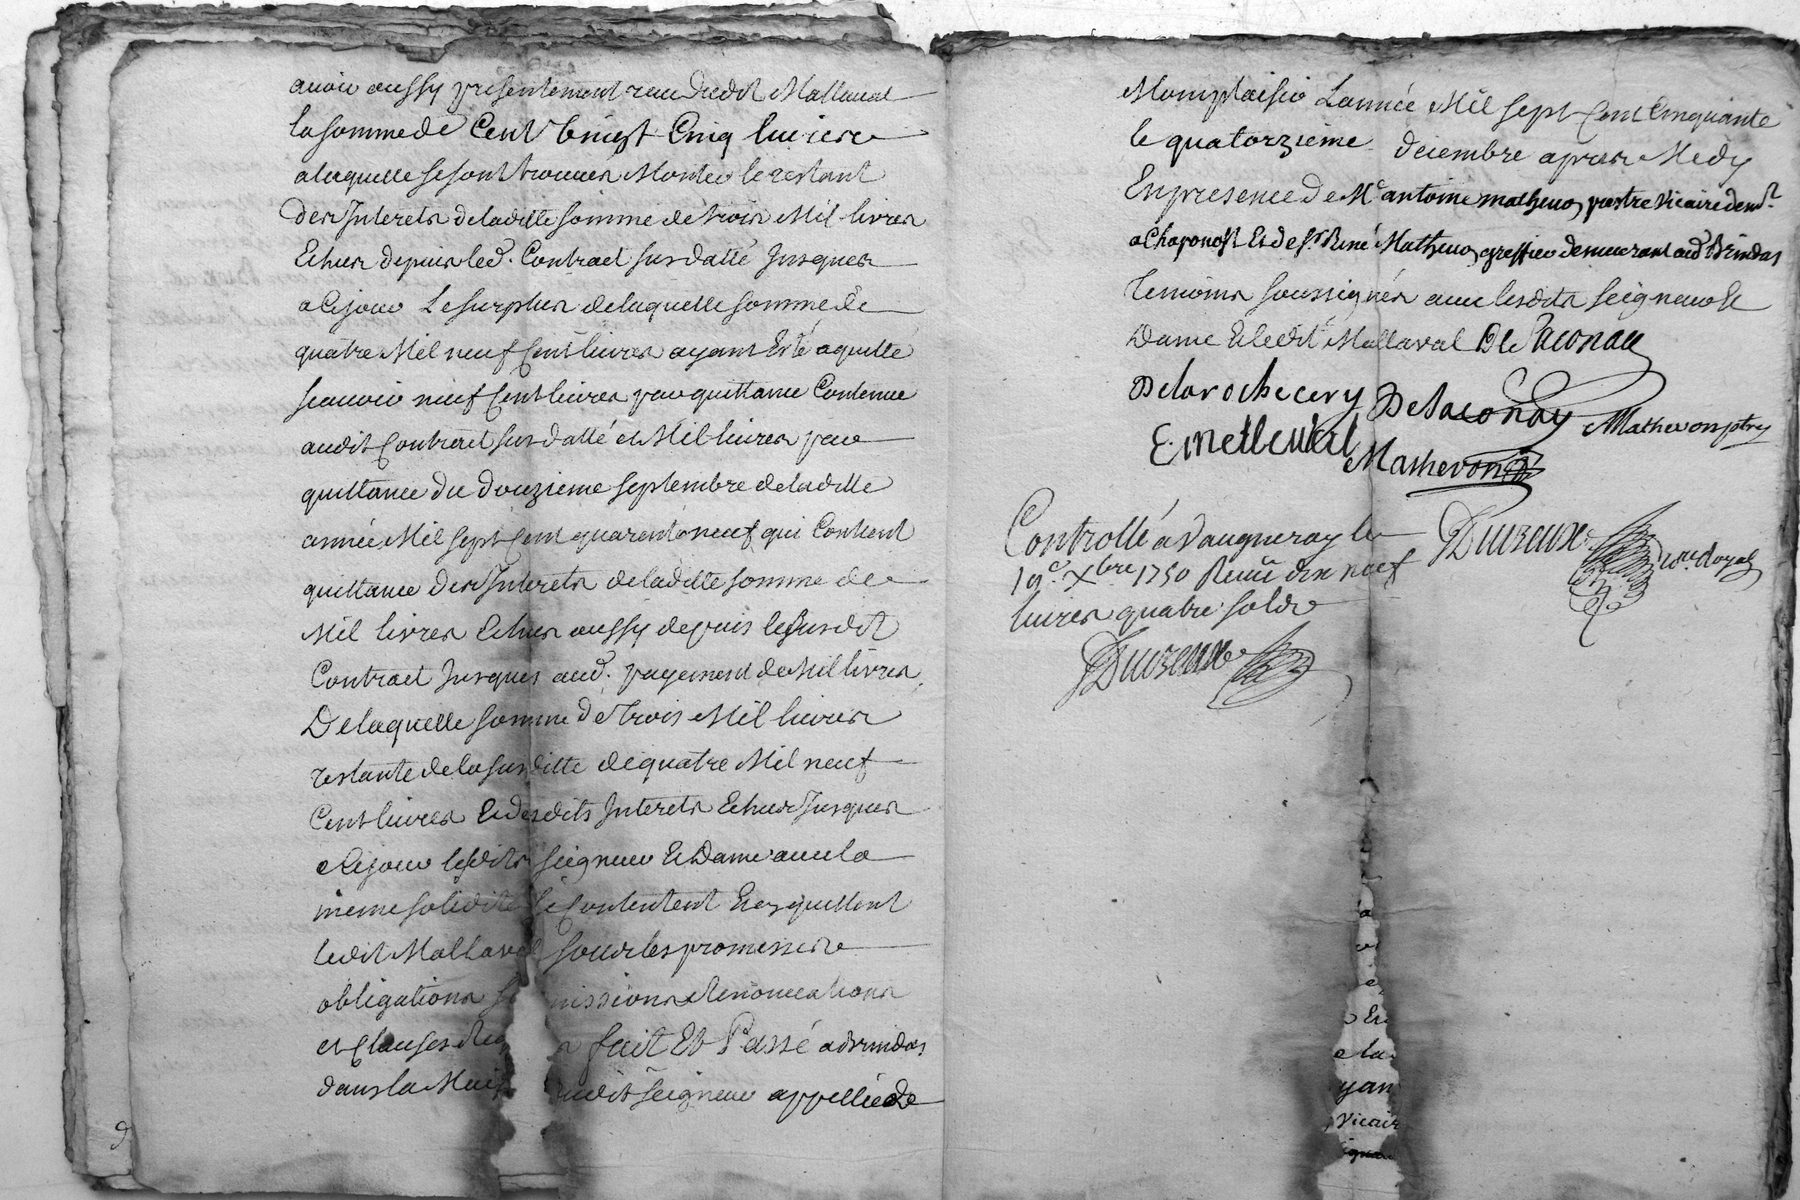 avoir aussy presentement receu dudit Mallaval
la somme de Cent vingt Cinq livres
a laquelle se sont trouvés Monter le restant
des Interets de laditte somme de trois Mil livres
Echus depuis led. Contract susdatté Jusques
a Cejour Le surplus de laquelle somme de
quatre Mil neuf Cent livres ayant Esté aquitté
scavoir neuf Cent livres par quittance Contenue
audit Contract susdatté et Mil livres par
quittance du douzieme septembre de laditte
année Mil sept Cent quarente neuf qui Contient
quittance des Interets de laditte somme de
Mil livres Echus aussy depuis le susdit
Contract Jusques aud. payement de Mil livres,
De laquelle somme de trois Mil livres
restante de la susditte de quatre Mil neuf
Cent livres Et desdits Interets Echus Jusques
a Cejour lesdits seigneur Et Dame avec la
meme solidité se Contentent Et quittent
ledit Mallaval sous les promesses
obligations missions Renonciations
et Clauses fait Et Passé a Brindas
dans la dudit seigneur appellée de
9
Momplaisir Lannée Mil sept Cent Cinquante
le quatorzieme decembre apres Medy
En presence de Me antoine mathevon prestre Vicaire demt.
a Chaponost Et de sr. René Mathevon greffier demeurant aud Brindas
Temoins soussignés avec lesdits seigneur Et
Dame Et ledit Mallaval De Laconay
Delarochecery Delaconay Mathevon ptre
Mathevon
Controllé a Vaugneray le
19e. Xbre 1750 Receu dix neuf
livres quatre sols
Duvzeux
Duvzeux no.re Royal
o Et
e la
yan
Vicair
signé